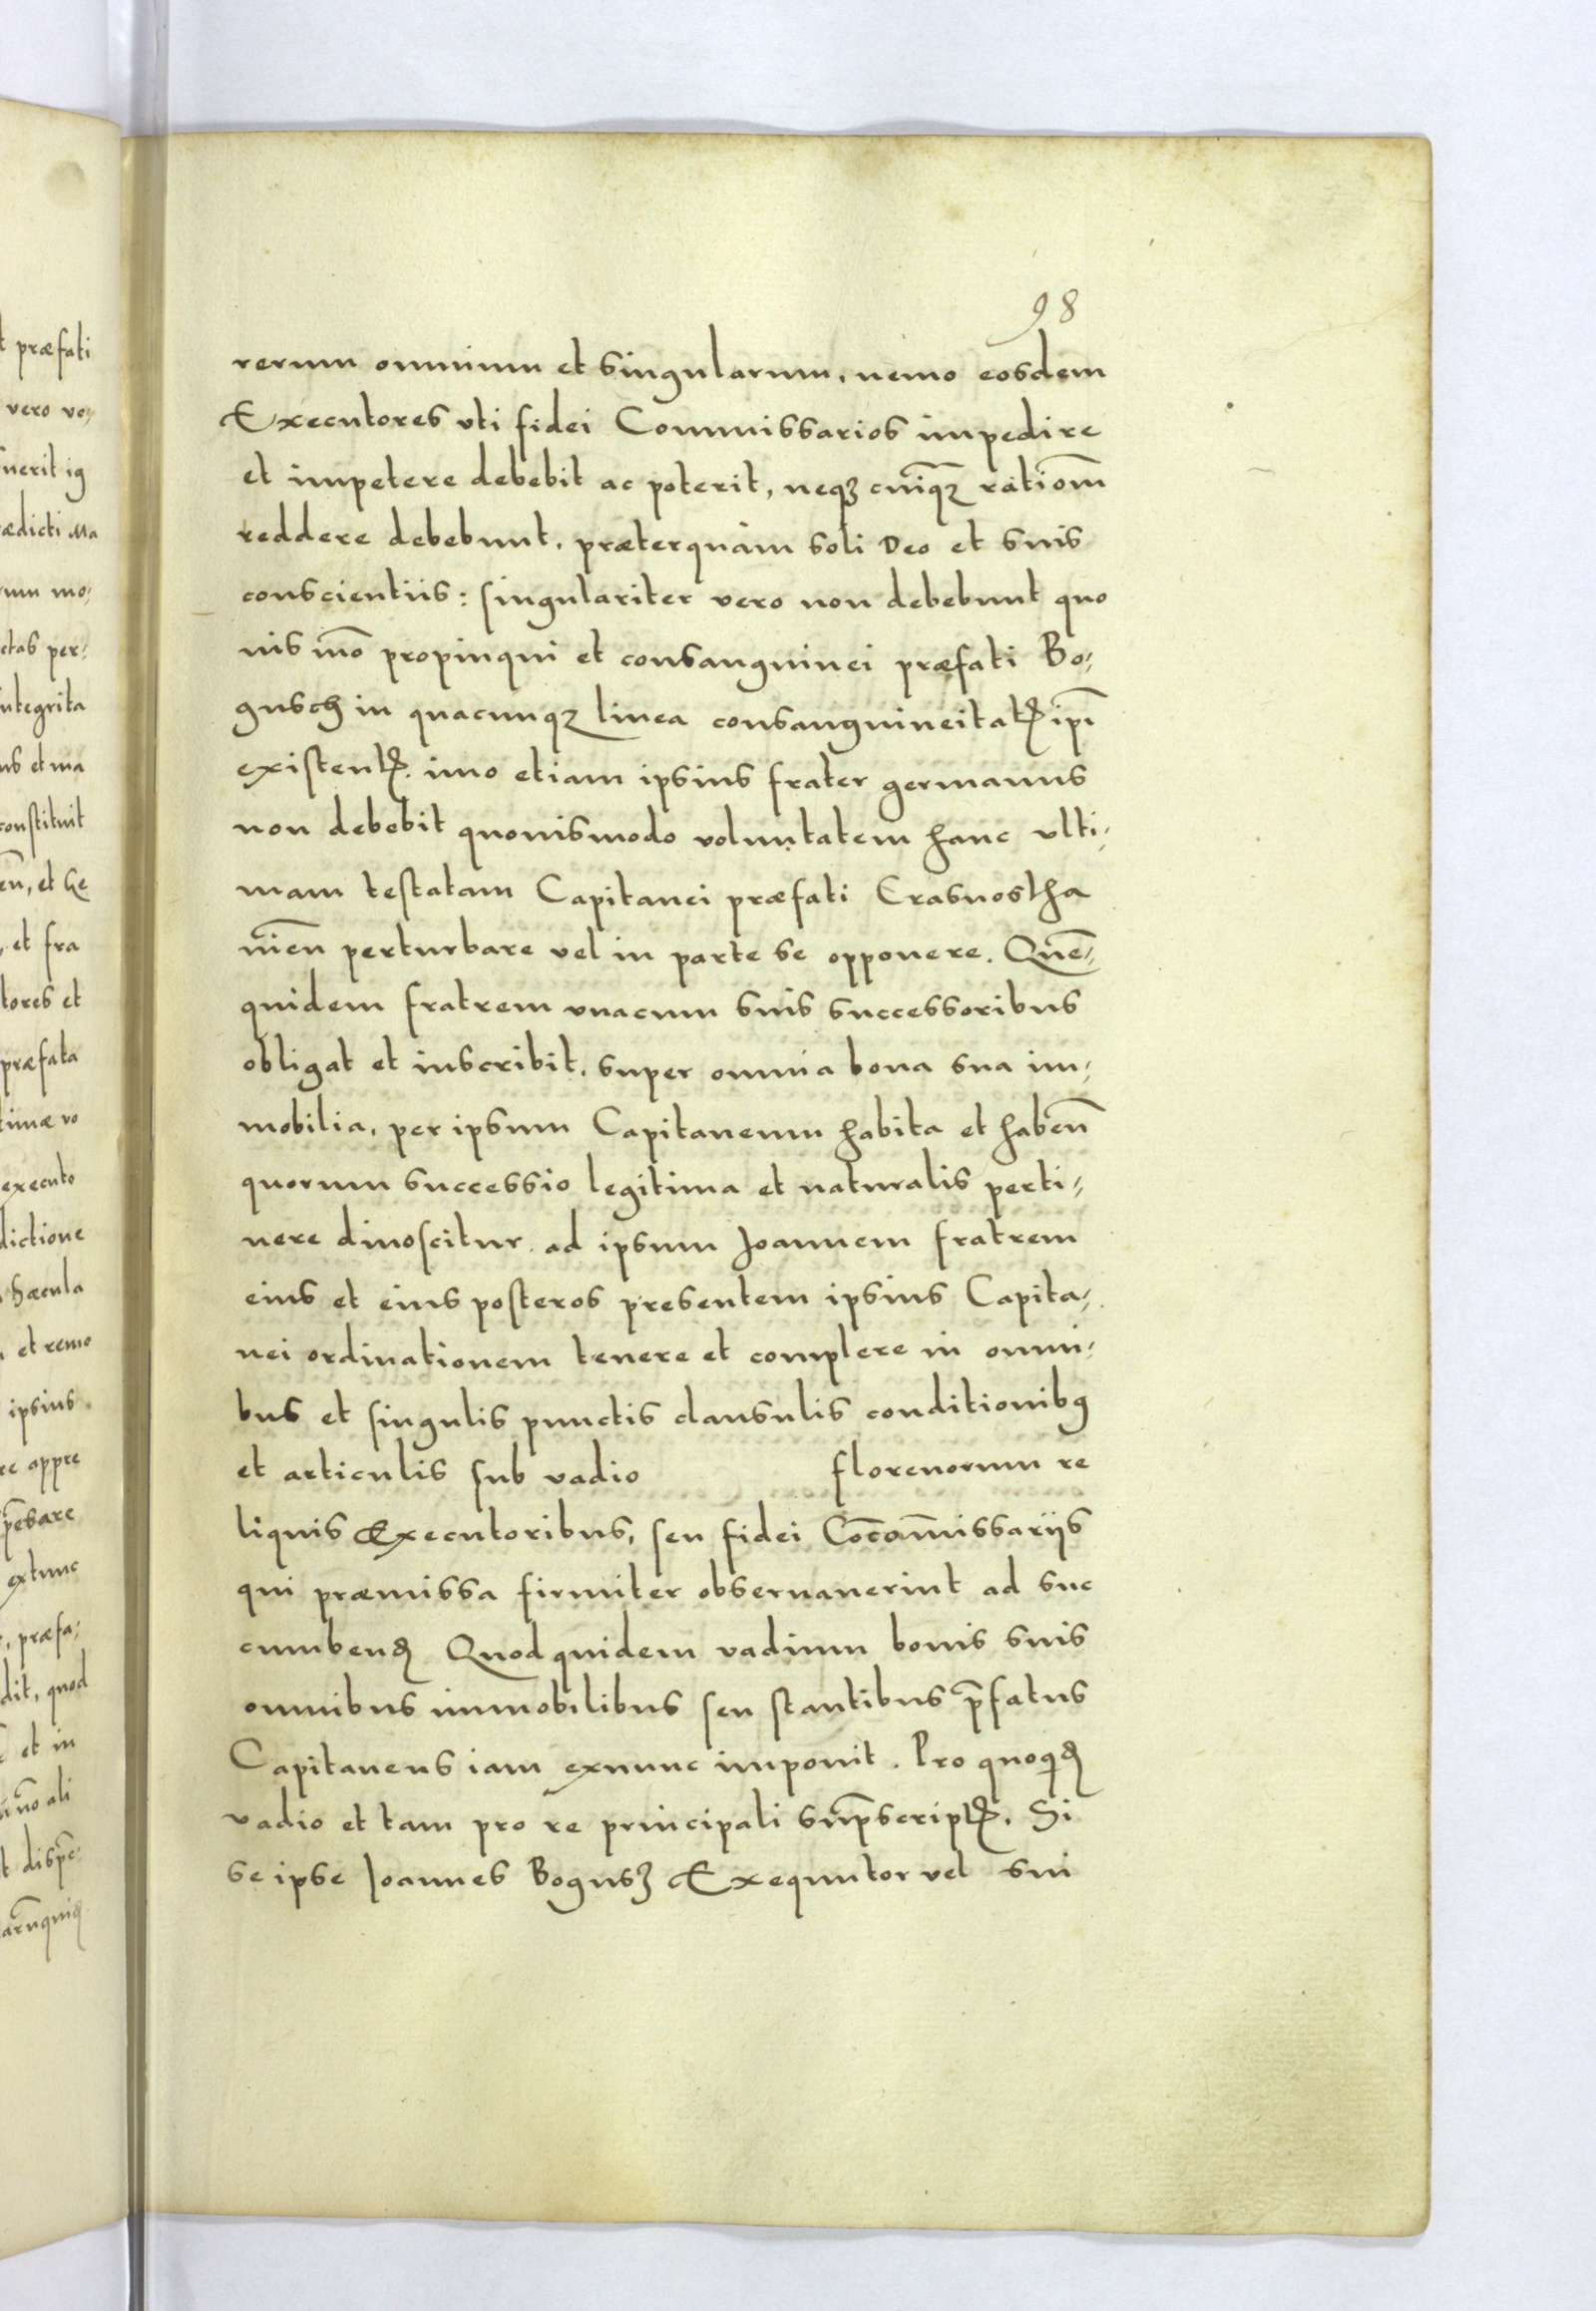 98
rerum omnium et singularum, nemo eosdem
Executores vti fidei Commissarios impedire
et impetere debebit ac poterit, neqꝫ cuīqꝫ ratiom̄
reddere debebunt, præterquàm soli Deo et suis
conscientiis: singulariter vero non debebunt quo
uis mō propinqui et consanguinei præfati Bo,
gusch in quacunqꝫ linea consanguineitatꝭ ipī
existentꝭ. imo etiam ipsius frater germanus
non debebit quouismodo voluntatem hanc vlti,
mam testatam Capitanei præfati Crasnostha
uien̄ perturbare vel in parte se opponere. Quē,
quidem fratrem vnacum suis successoribus
obligat et inscribit, super omnia bona sua im,
mobilia, per ipsum Capitaneum habita et haben̄
quorum successio legitima et naturalis perti,
nere dinoscitur ad ipsum Joannem fratrem
eius et eius posteros presentem ipsius Capita,
nei ordinationem tenere et complere in omni,
bus et singulis punctis clausulis conditionibꝰ
et articulis sub vadio florenorum re
liquis Executoribus, seu fidei Cōcom̄issariis
qui præmissa firmiter obseruauerint ad suc
cumbenꝺ Quodquidem vadium bonis suis
omnibus immobilibus seu stantibus p̄fatus
Capitaneus iam exnunc imponit. Pro quoqꝺ
vadio et tam pro re principali sup̄scriptꝭ. Si
se ipse Joannes Bogusꝫ Exequutor vel sui
t præfati
vero vo,
fuerit ig
ædicti Ma
rum mo,
ctas per,
integrita
us et ma
constituit
en̄, et he
, et fra
tores et
præfata
timæ vo
executo
dictione
hæcula
et remo
ipsius
re appre
p̄esare
extunc
, præfa,
dit, quod
et in
ali
t disp̄e,